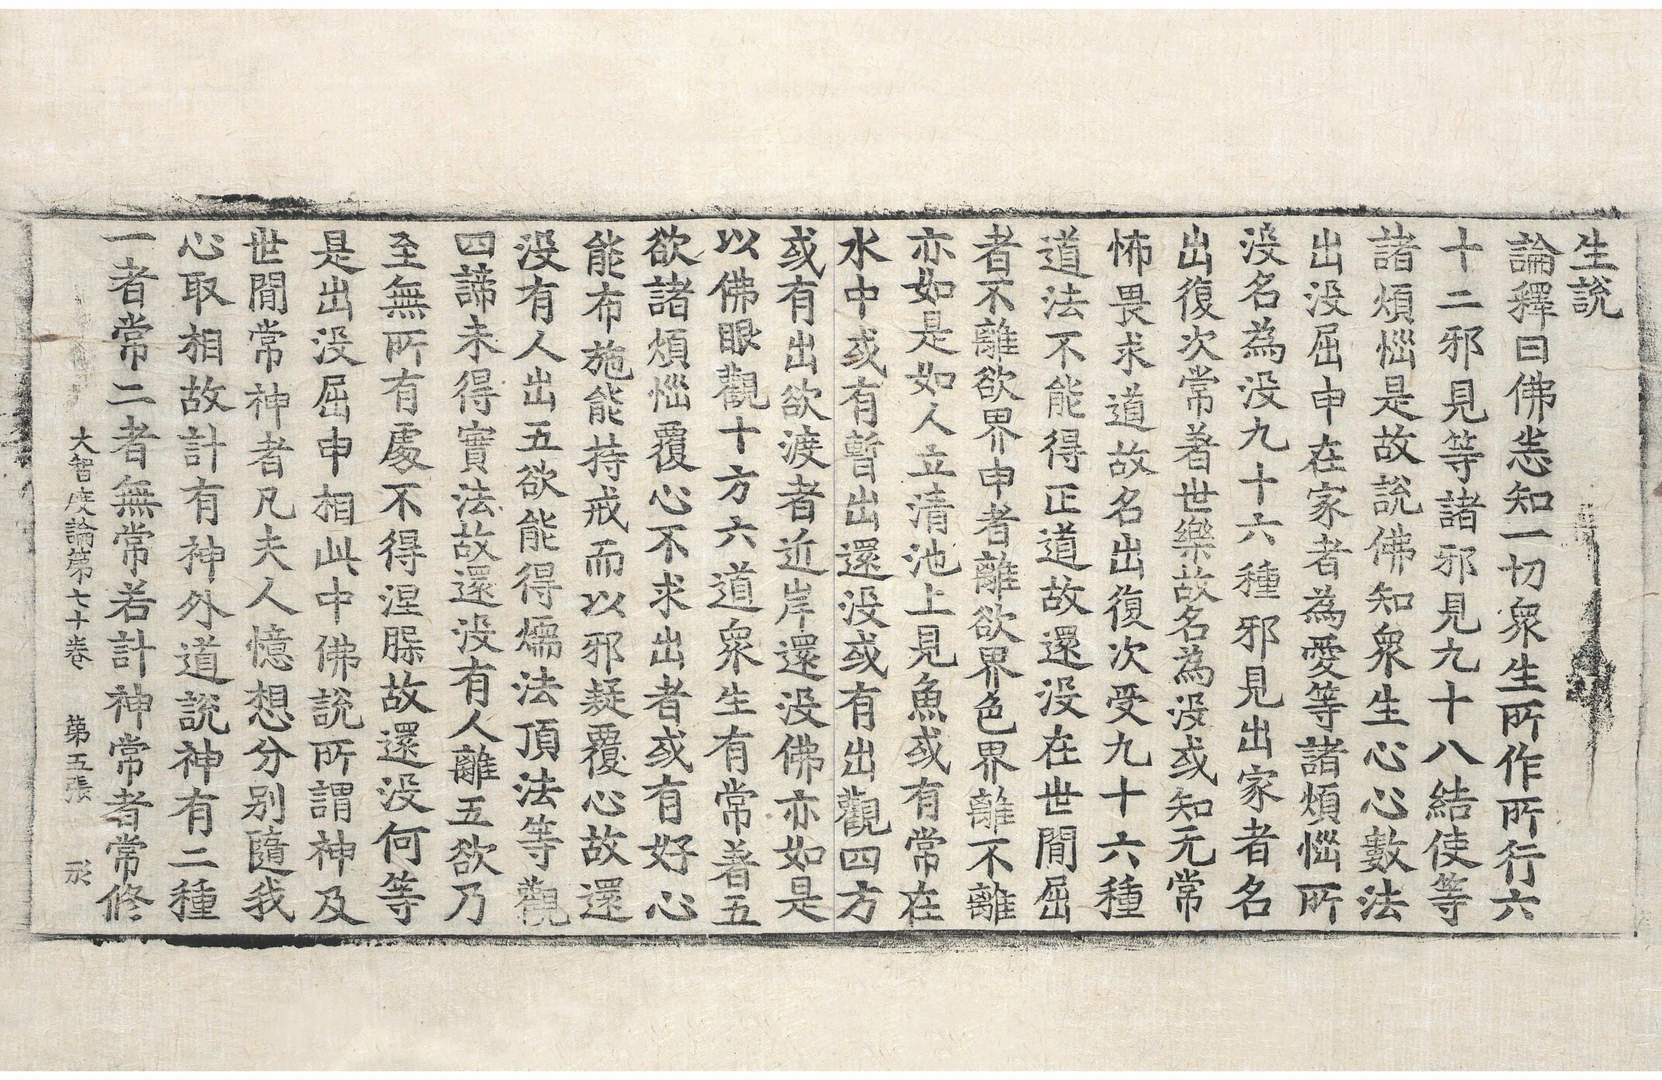 生説
論釋曰佛恙知一切衆生所作所行六
十二邪見等諸邪見九十八結使等
諸煩惱是故説佛知衆生心心數法
出没屈申在家者為愛等諸煩惱所
没名為没九十六種邪見出家者名
出復次常著世樂故名為没或知无常
怖畏求道故名出復次受九十六種
道法不能得正道故還没在世間屈
者不離欲界申者離欲界色界離不離
亦如是如人立清池上見魚或有常在
水中或有暫出還没或有出觀四方
或有出欲渡者近岸還没佛亦如是
以佛眼觀十方六道衆生有常著五
欲諸煩惱覆心不求出者或有好心
能布施能持戒而以邪疑覆心故還
没有人出五欲能得煗法頂法等觀
四諦未得實法故還没有人離五欲乃
至無所有處不得涅槃故還没何等
是出没屈申相此中佛説所謂神及
世間常神者凡夫人憶想分别隨我
心取相故計有神外道説神有二種
一者常二者無常若計神常者常修
大智度論第七十卷 第五張